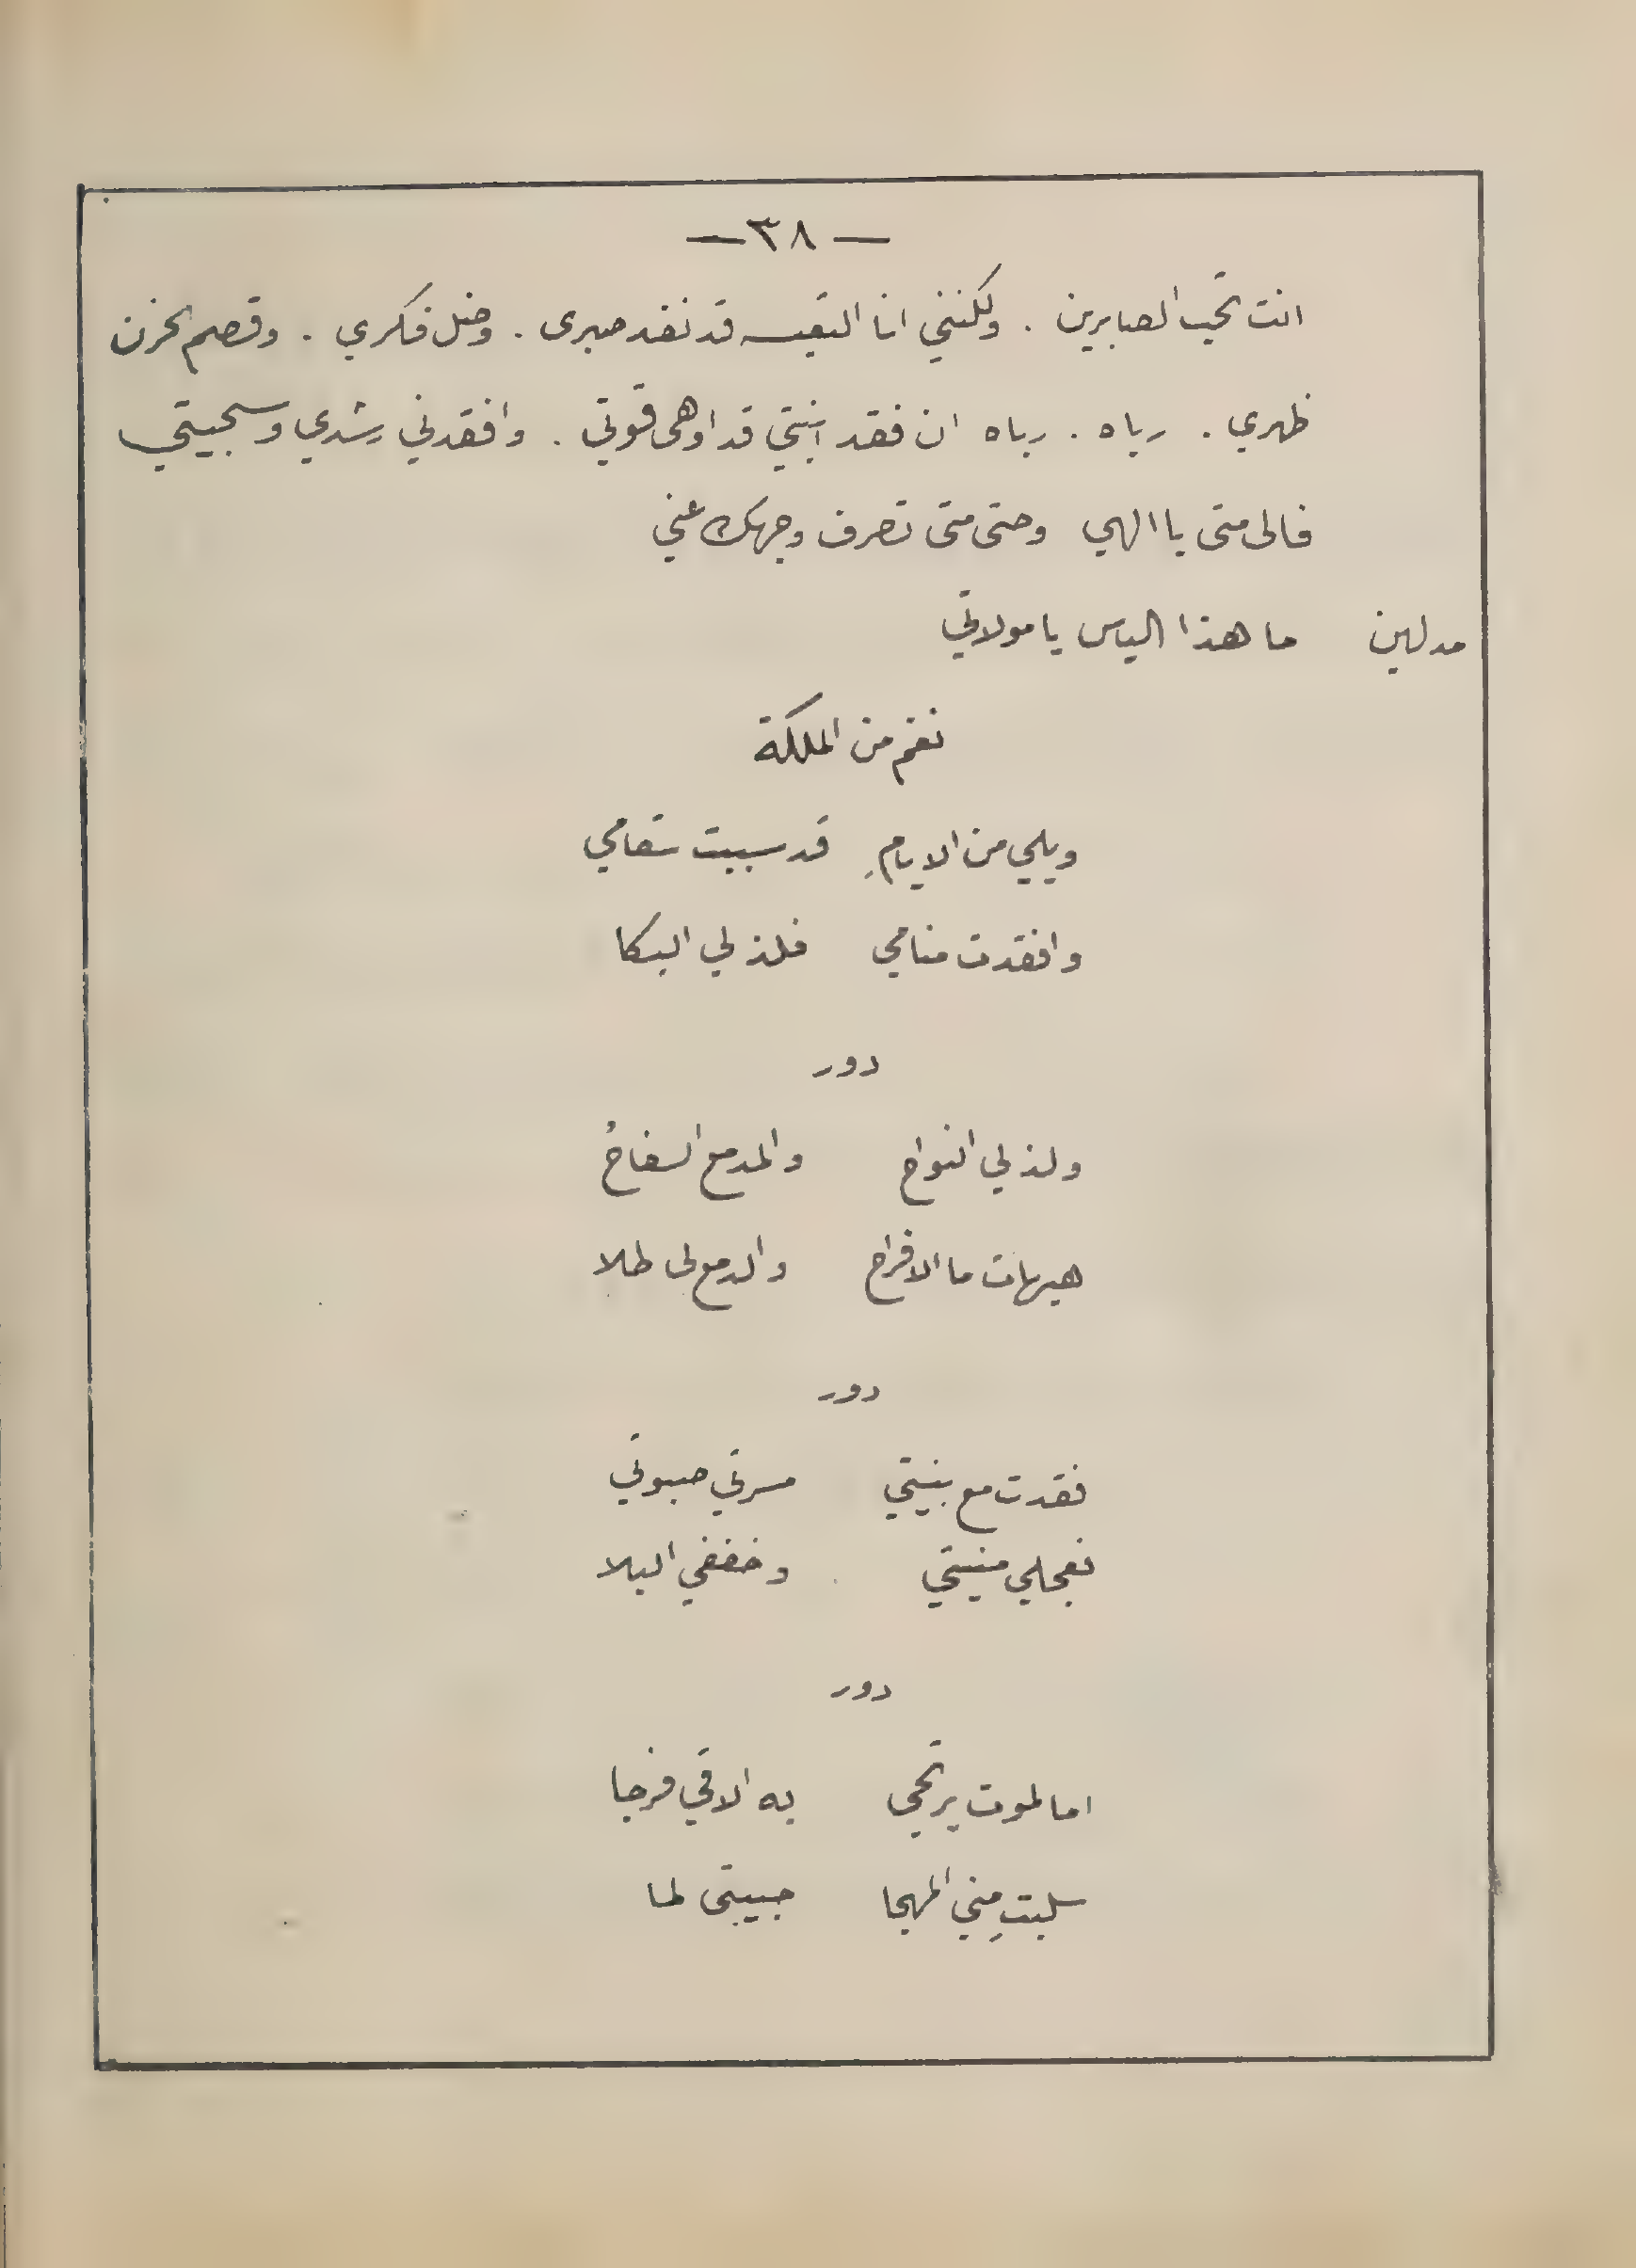 — ٣٨ —
انت تحب الصابرين . ولكنني انا التعيسه قد نفد صبرى . وضل فكري . وقصم الحزن
ظهري . رباه . رباه ان فقد ابنتي قد اوهى قوتي . وافقدني رشدي وسجيتي
فالى متى يا الهي وحتى متى تصرف وجهك عني
مدلين ما هذا الياس يا مولاتي
نغم من الملكة
ويلي من الايامِ قد سببت سقامي
وافقدت منامي فلذ لي البكا
دور
ولذ لي النواح والمدمع السفاحُ
هيهات ما الافراح والدمع لى طلا
دور
فقدت مع بنيتي مسرتي صبوتي
فعجلي منيتي وخففي البلا
دور
اما لموت يرتجى به الاقي فرجا
سلبتِ مني المهجا حبيبتى لما